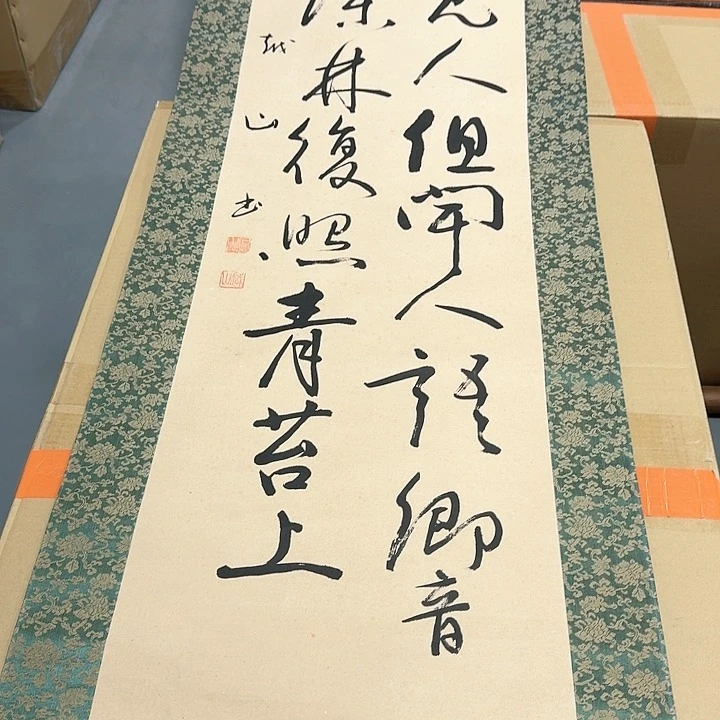 見人但聞人語響
深林復照青苔上
越山書